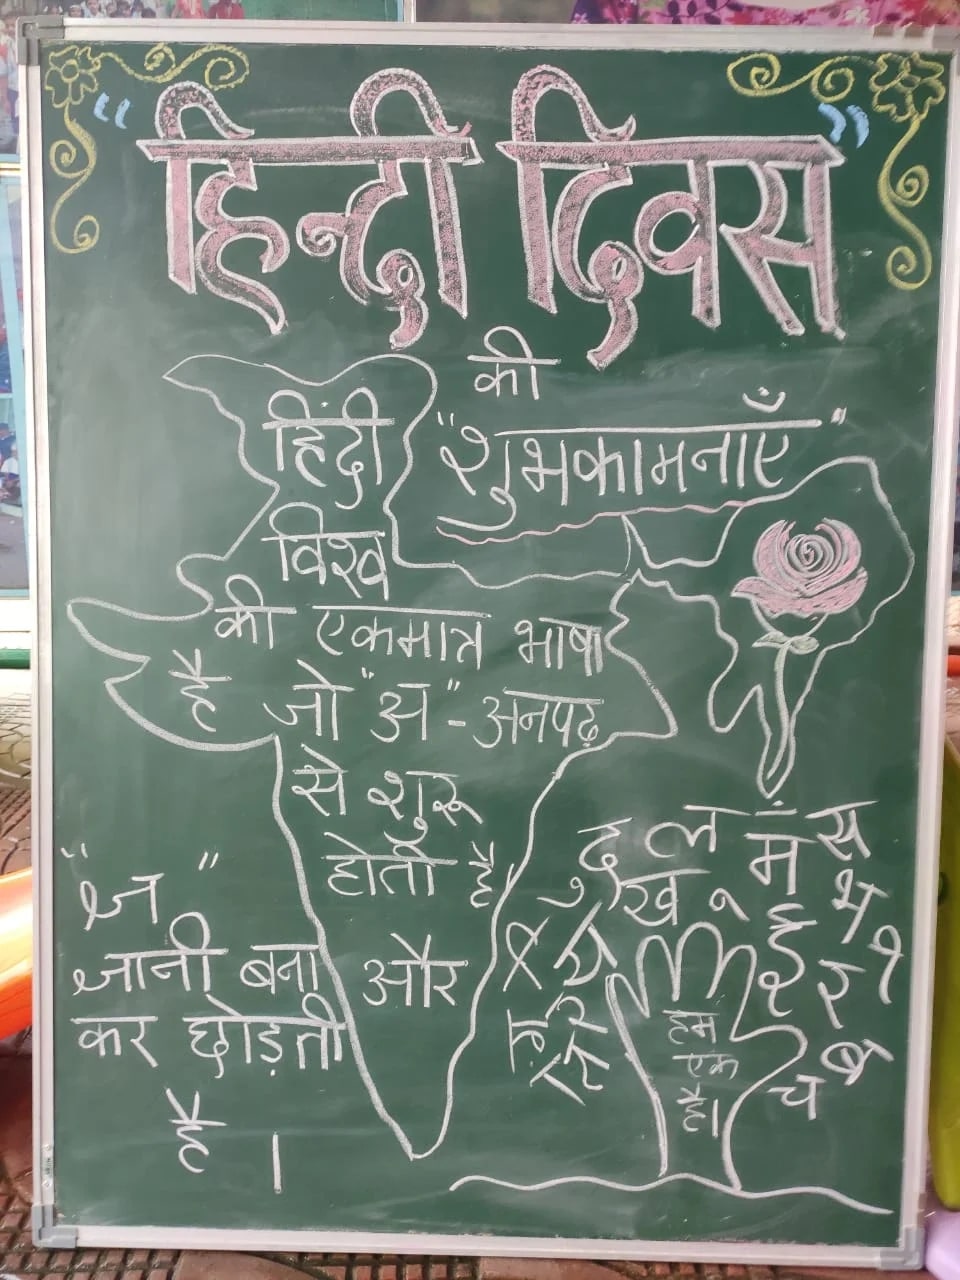 "हिन्दी दिवस"
की
"शुभकामनाएँ"
हिंदी
विश्व
की एकमात्र भाषा
है जो "अ" - अनपढ़
से शुरू
होती है
और
"ज्ञ"
ज्ञानी बना
कर छोड़ती
है ।
द ल म स
ख भ
र
च ब
हम
एक
है।